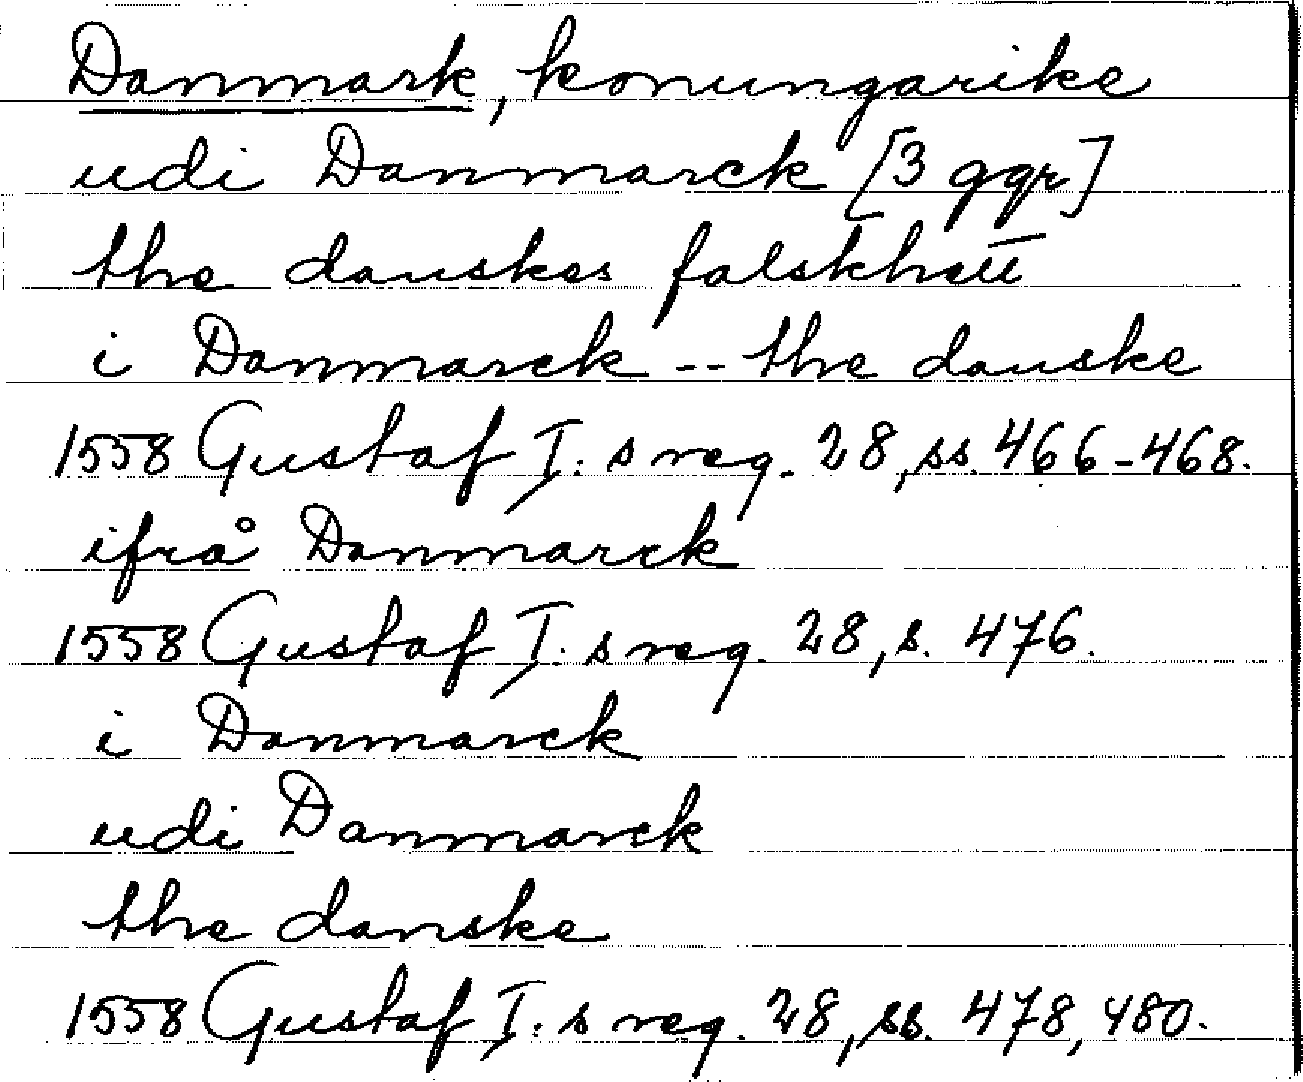 Danmark, konungarike
udi Danmarck [3 ggr]
the danskes falskhett
i Danmarck -- the danske
1558 Gustaf I:s reg. 28, ss. 466-468.
ifrå Danmarck
1558 Gustaf I:s reg. 28, s. 476.
i Danmarck
udi Danmarck
the danske
1558 Gustaf I:s reg. 28, ss. 478, 480.